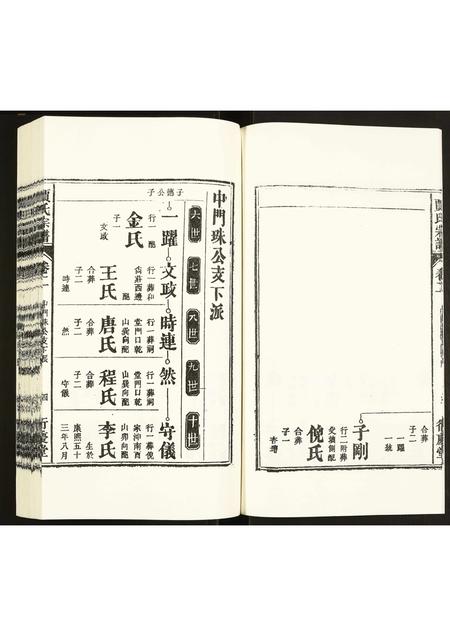 子剛
行二附葬
兌墳側配
倪氏
合葬
子一
合葬
子二
一躍
一
賈氏宗譜
卷二
行慶堂
中門珠公支下派
六世
七世
八世
九世
十世
子德公子
一躍
行一配
金氏
子一
文政
文政
行一葬和
尙莊西邊
配
王氏
合葬
子二
時連
時連
行一葬祠
堂門口乾
山巽向配
唐氏
合葬
子二
然
然
行一葬祠
堂門口乾
山巽向配
程氏
合葬
子二
守儀
守儀
行一葬倪
家沖南酉
山卯向配
李氏
生於
康熙五十
三年八月
賈氏宗譜
卷二
中門珠公支下派
四
行慶堂